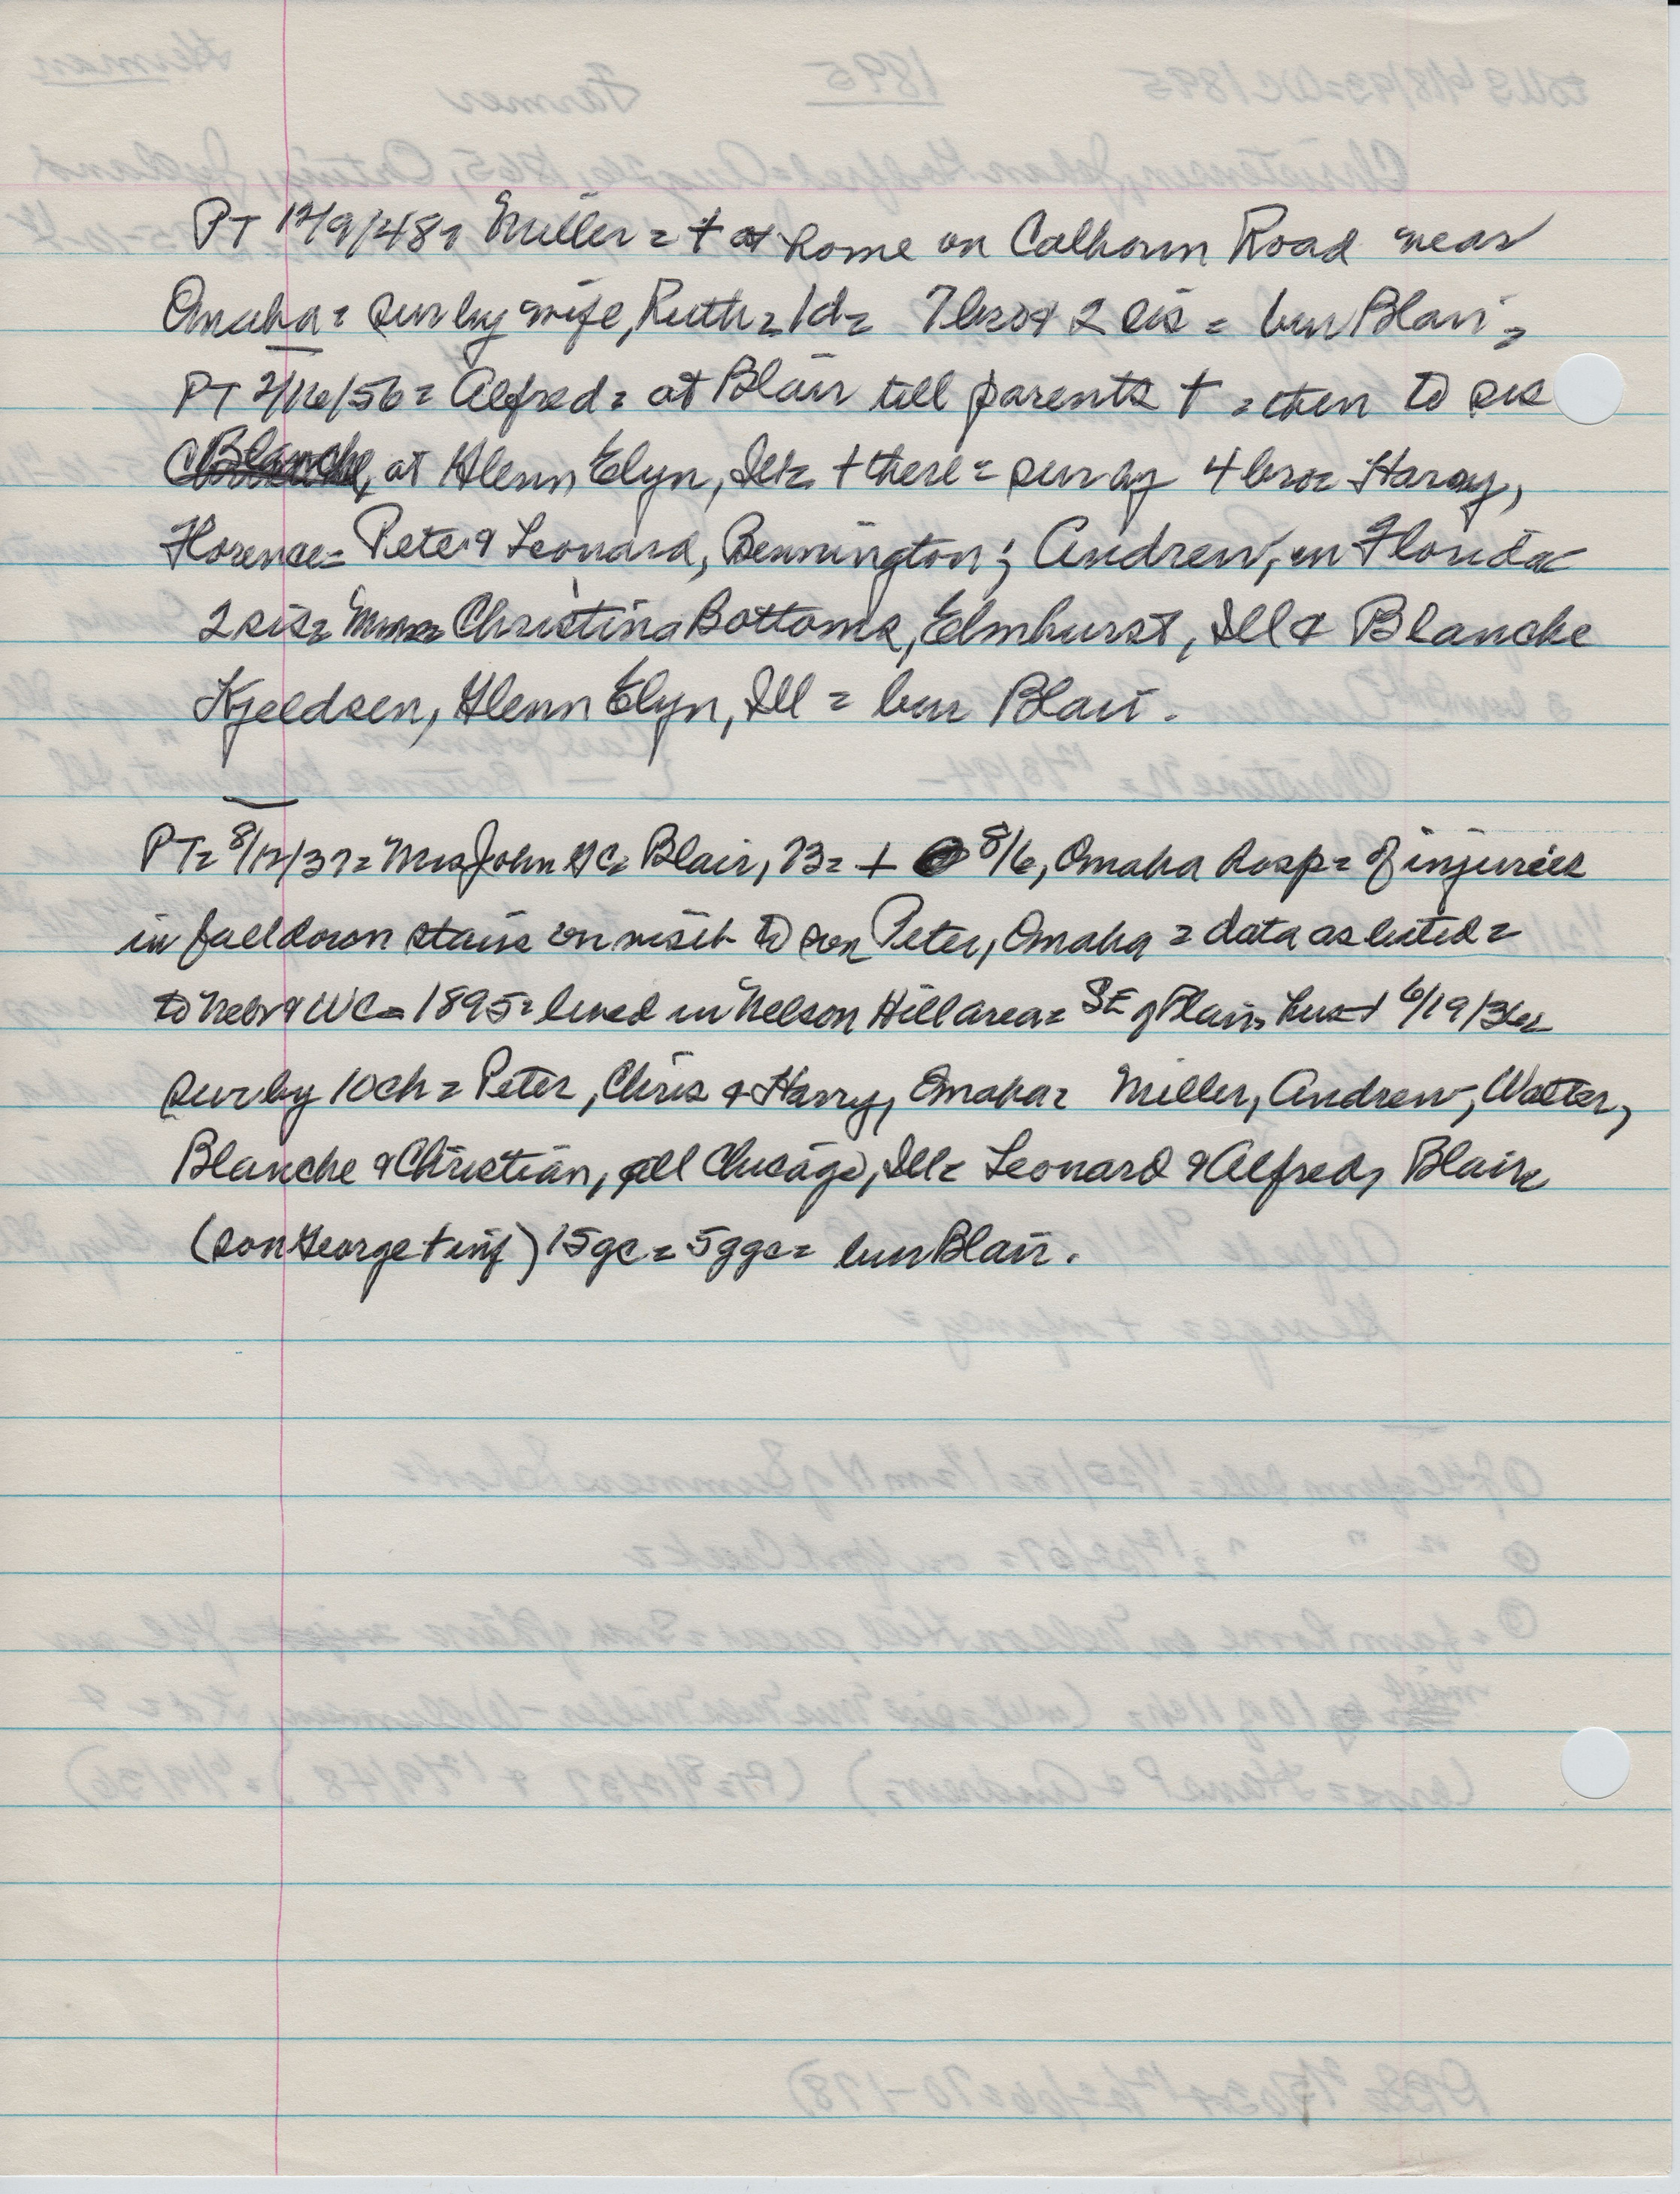 PT 12/9/48, Miller = + at home on Calhoun Road near
Omaha = sur by wife, Ruth = 1d = 7 bro & 2 sis = bur Blair =
PT 2/16/56 = Alfred = at Blair till parents + = then to sis
Blanche, at Glenn Elyn, Ill = + there = sur by 4 bro = Harry,
Florence = Peter & Leonard, Bennington; Andrew, in Florida
2 sis = Christina Bottoms, Elmhurst, Ill & Blanche
Kjeldsen, Glenn Elyn, Ill = bur Blair.
PT = 8/12/37 = Mrs John GC = Blair, 73 = + 8/6, Omaha hosp = of injuries
in fall down stairs on visit to son Peter, Omaha = data as listed =
to Nebr & WC = 1895 = lived in Nelson Hill area = SE of Blair, hus + 6/19/36 =
sur by 10 ch = Peter, Chris & Harry, Omaha = Miller, Andrew, Walter,
Blanche & Christian, all Chicago, Ill = Leonard & Alfred, Blair =
(son George + inf) 15 gc = 5 ggc = bur Blair.